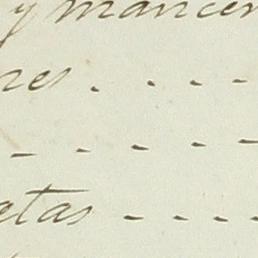 y mancer
res . . - -
- - - - -
etas - - - -